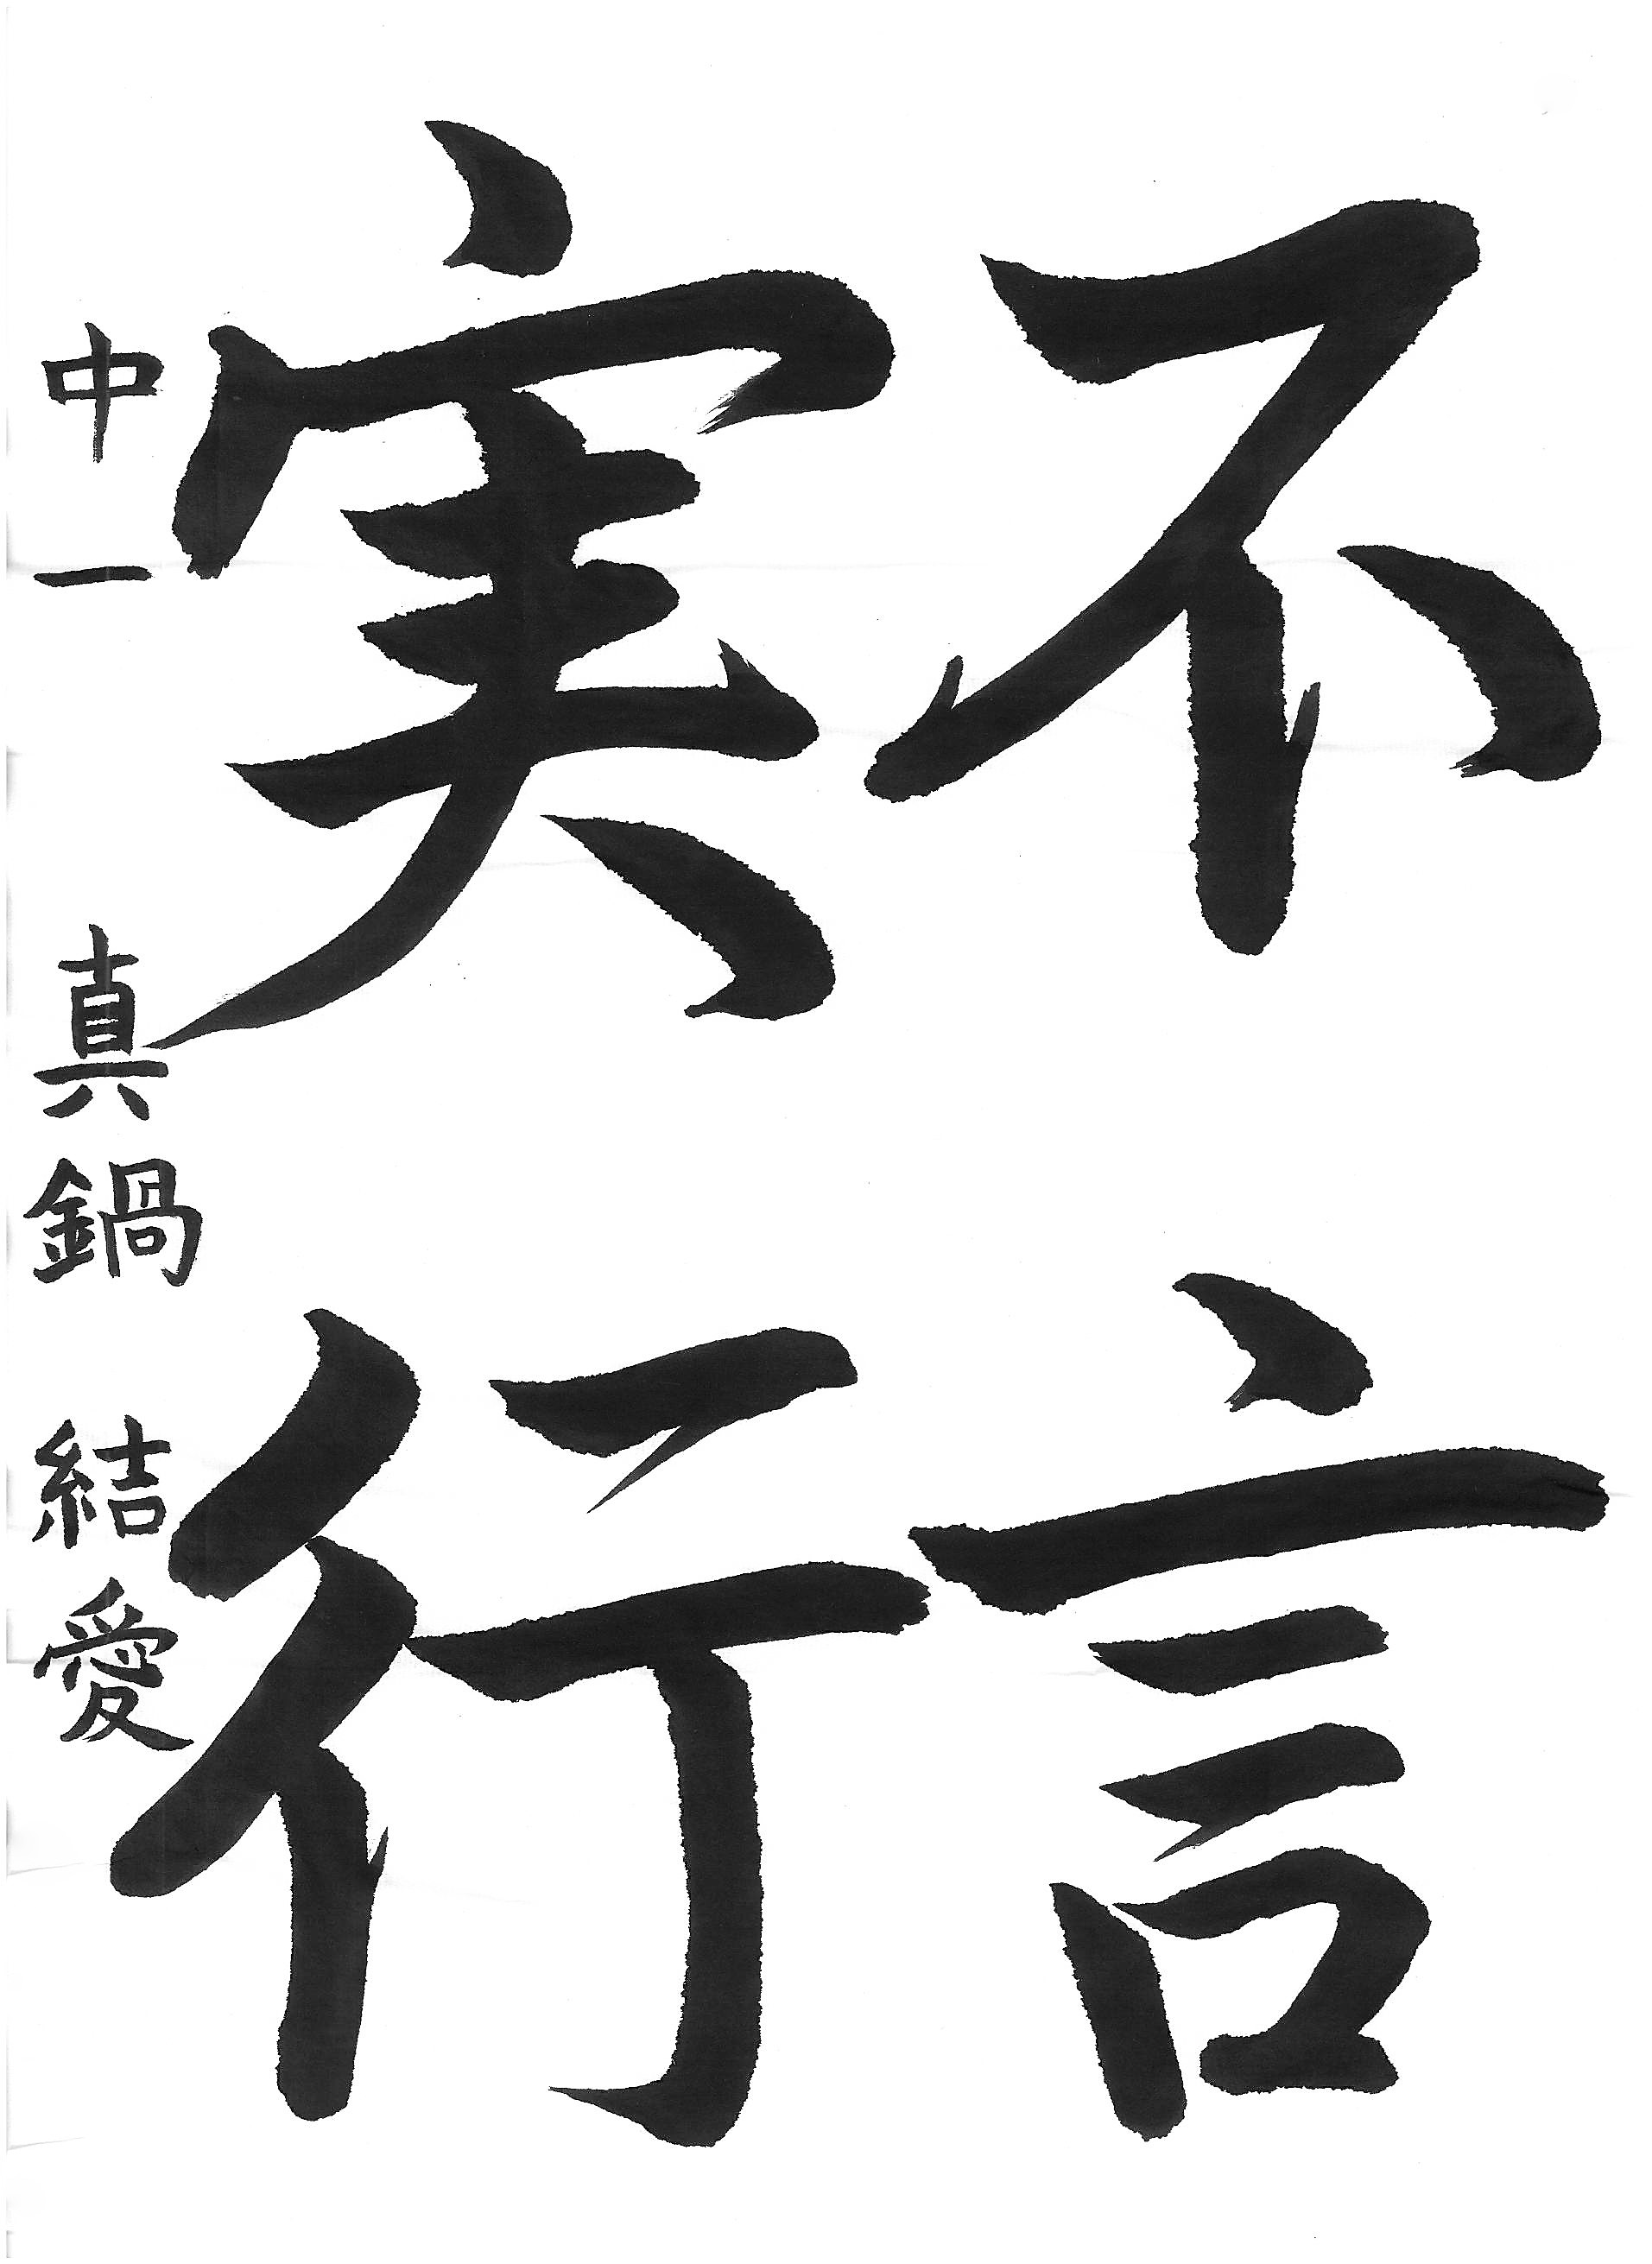 不言
実行
中一 真鍋 結愛